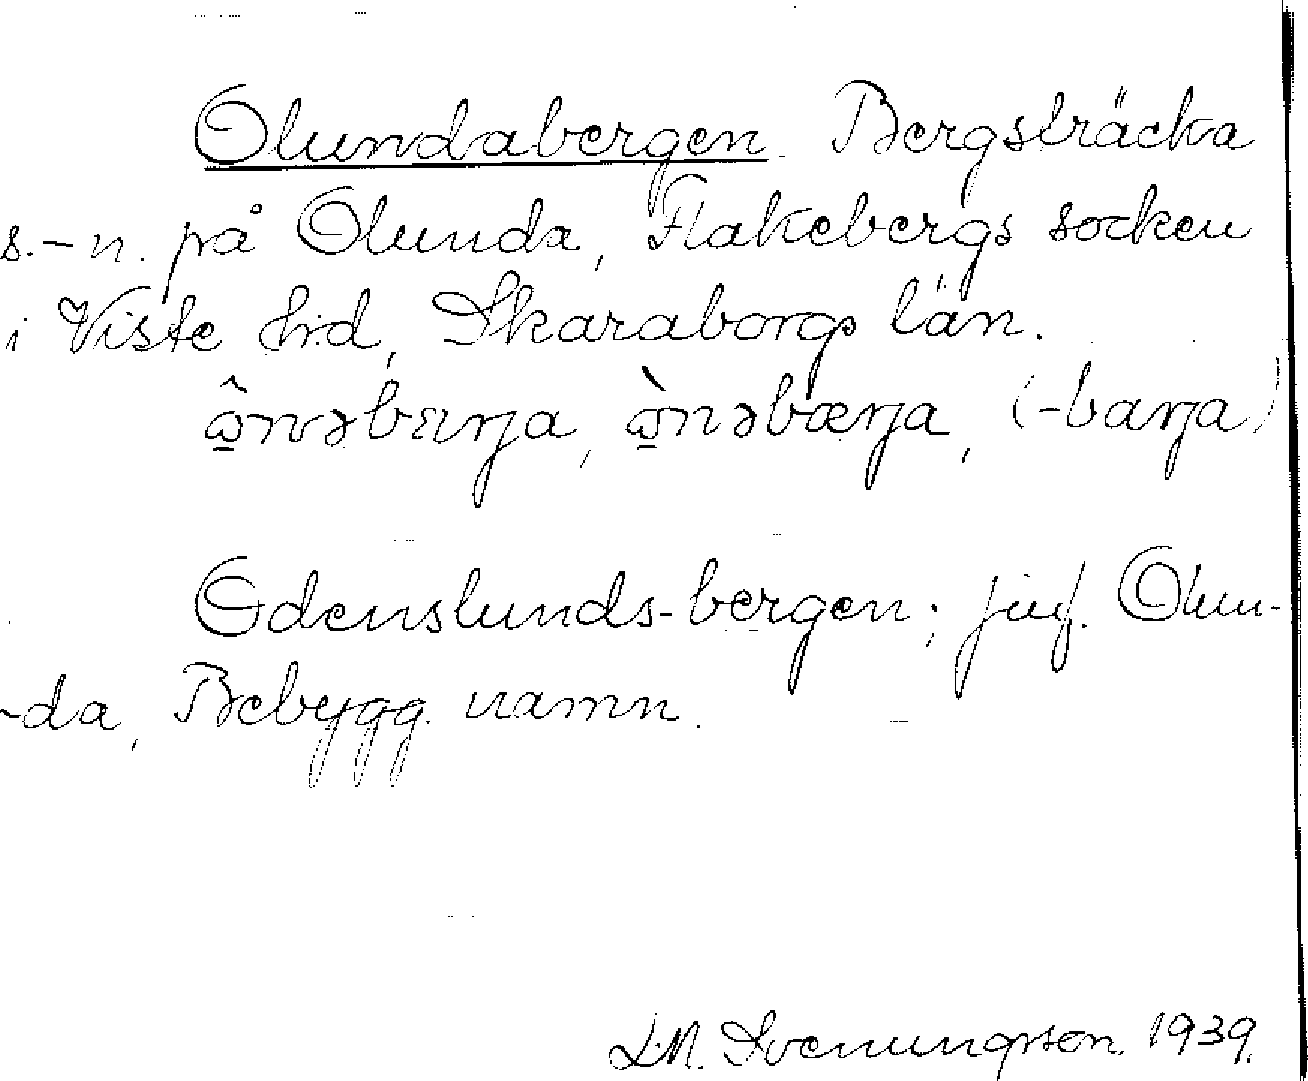 Olundabergen. Bergsträcka
s.-n. på Olunda, Flakebergs socken
i Viste h:d, Skaraborgs län.
(-barja)
Odenslunds-bergen; jmf. Olun-
-da, Bebygg. namn.
L.M. Svenungsson 1939.